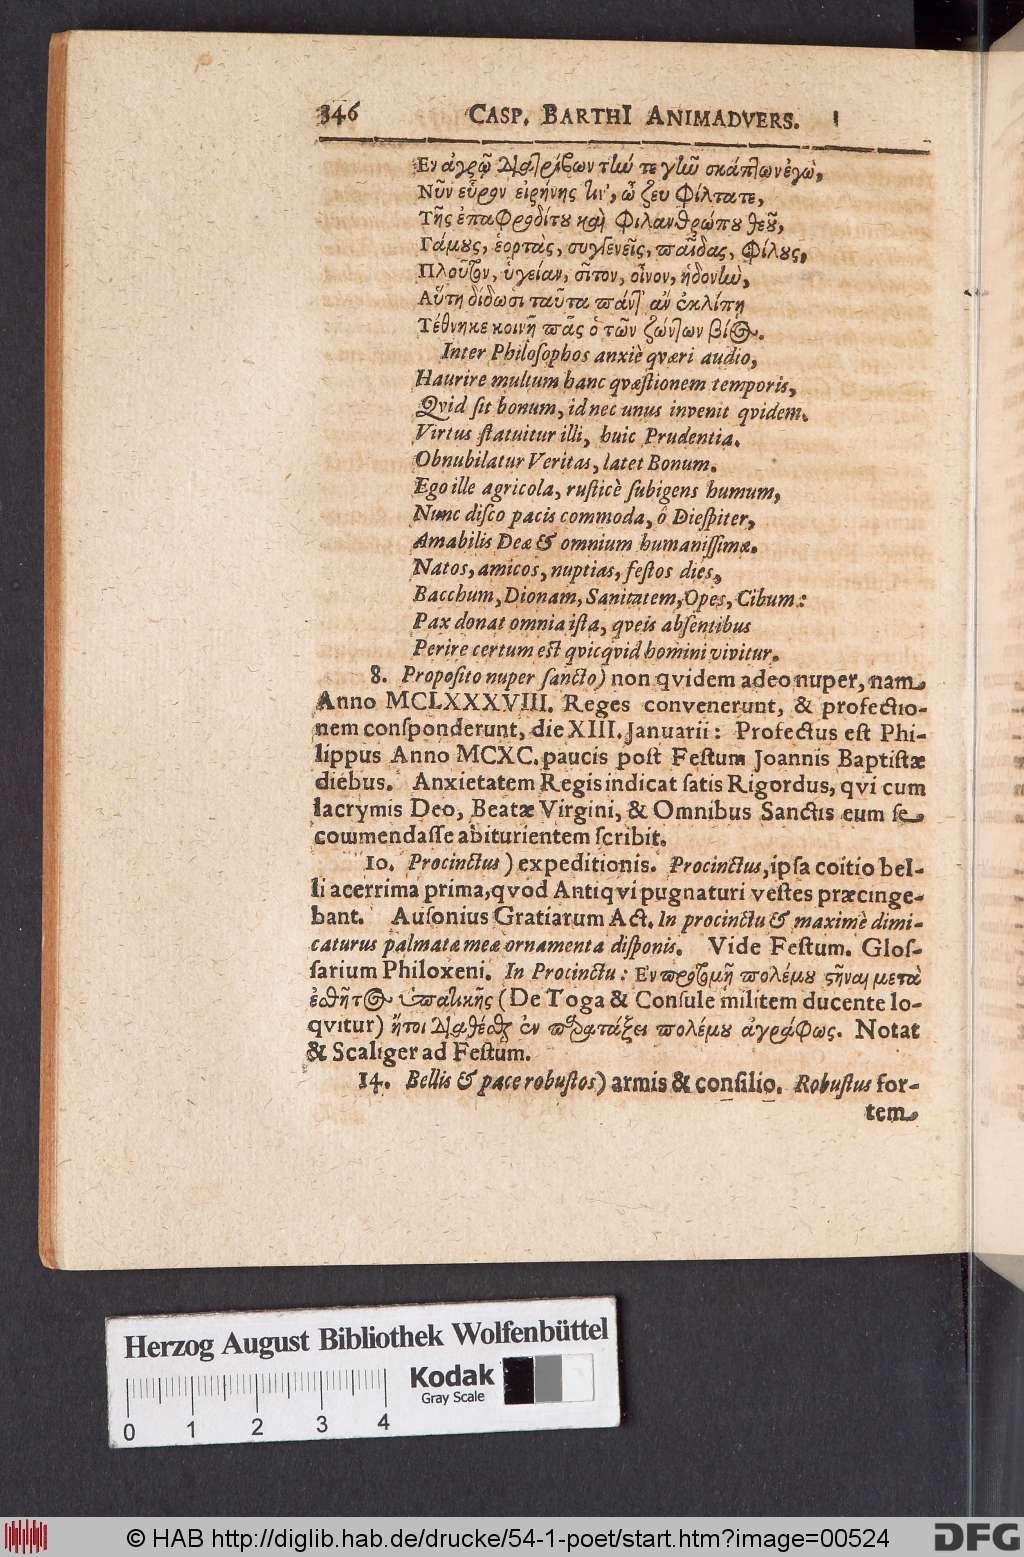 346 CASP. BARTHI ANIMADVERS.
Εν ἀγρῷ διατρίβων τίω τε γίω σκάπτων ἐγὼ,
Νῦν εὗρον εἰρήνης τιν', ὦ ζευ φίλτατε,
Τῆς ἐπαφροδίτου καὶ φιλανθρώπου θεοῦ,
Γάμους, ἑορτὰς, συγγενεῖς, παῖδας, φίλους,
Πλοῦτον, ὑγείαν, σῖτον, οἶνον, ἡδονίω,
Αὕτη δίδωσι ταῦτα πάντ' ἂν ἐκλίπῃ
Τέθνηκε κοινῇ πᾶς ὁ τῶν ζώντων βίος.
Inter Philoſophos anxiè qværi audio,
Haurire multum hanc qvæſtionem temporis,
Qvid ſit bonum, id nec unus invenit qvidem.
Virtus ſtatuitur illi, huic Prudentia.
Obnubilatur Veritas, latet Bonum.
Ego ille agricola, ruſticè ſubigens humum,
Nunc diſco pacis commoda, ô Dieſpiter,
Amabilis Deæ & omnium humaniſſimæ.
Natos, amicos, nuptias, feſtos dies,
Bacchum, Dionam, Sanitatem, Opes, Cibum:
Pax donat omnia iſta, qveis abſentibus
Perire certum eſt qvicqvid homini vivitur.
8. Propoſito nuper ſancto) non qvidem adeo nuper, nam
Anno MCLXXXVIII. Reges convenerunt, & profectio-
nem conſponderunt, die XIII. Januarii: Profectus eſt Phi-
lippus Anno MCXC. paucis poſt Feſtum Joannis Baptiſtæ
diebus. Anxietatem Regis indicat ſatis Rigordus, qvi cum
lacrymis Deo, Beatæ Virgini, & Omnibus Sanctis eum ſe
commendaſſe abiturientem ſcribit.
10. Procinctus) expeditionis. Procinctus, ipſa coitio bel-
li acerrima prima, qvod Antiqvi pugnaturi veſtes præcinge-
bant. Auſonius Gratiarum Act. In procinctu & maximè dimi-
caturus palmatæ meæ ornamenta diſponis. Vide Feſtum. Gloſ-
ſarium Philoxeni. In Procinctu: Εν προτομῇ πολέμου ϛῆναι μετὰ
ἐσθῆτος ὑπατικῆς (De Toga & Conſule militem ducente lo-
qvitur) ἤτοι διαθέσθαι ἐν παρατάξει πολέμου ἀγράφως. Notat
& Scaliger ad Feſtum.
14. Bellis & pace robuſtos) armis & conſilio. Robuſtus for-
tem
Herzog August Bibliothek Wolfenbüttel
Kodak
Gray Scale
0 1 2 3 4
© HAB http://diglib.hab.de/drucke/54-1-poet/start.htm?image=00524
DFG